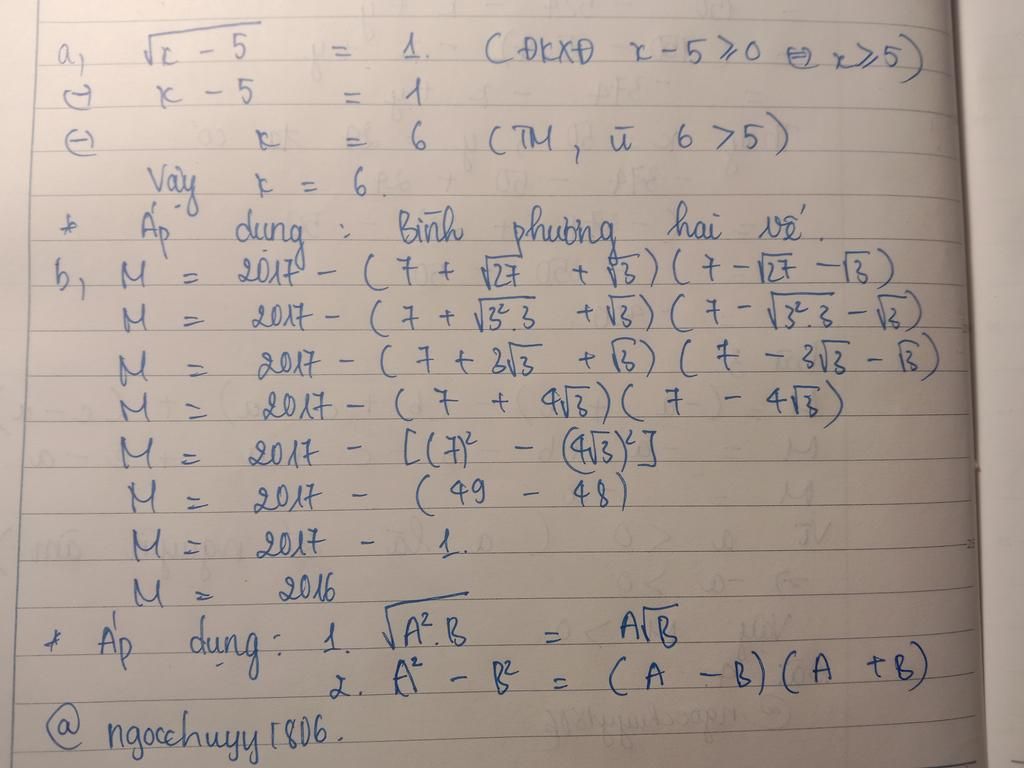 a, √(x - 5) = 1. (ĐKXĐ x - 5 ≥ 0 ⇔ x ≥ 5)
⇔ x - 5 = 1
⇔ x = 6 (TM, vì 6 > 5)
Vậy x = 6.
* Áp dụng : Bình phương hai vế.
b, M = 2017 - (7 + √27 + √3)(7 - √27 - √3)
M = 2017 - (7 + √(3².3) + √3)(7 - √(3².3) - √3)
M = 2017 - (7 + 3√3 + √3)(7 - 3√3 - √3)
M = 2017 - (7 + 4√3)(7 - 4√3)
M = 2017 - [(7)² - (4√3)²]
M = 2017 - (49 - 48)
M = 2017 - 1.
M = 2016
* Áp dụng: 1. √(A².B) = A√B
2. A² - B² = (A - B)(A + B)
@ ngocchuyy1806.